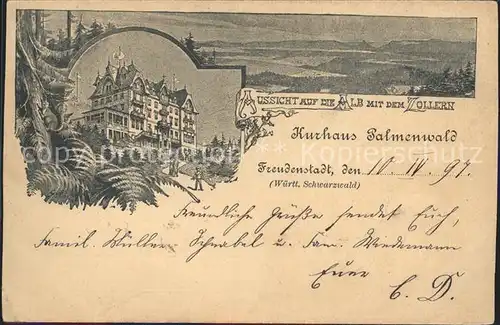 Aussicht auf die Alb mit dem Zollern
Kurhaus Palmenwald
Freudenstadt, den 10. IV. 97.
(Württ. Schwarzwald)
Freundliche Grüße sendet Euch,
Famil. Müller Schnabel u. Fam. Wiedemann
Euer
C. D.